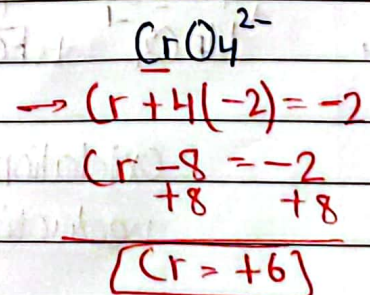 CrO₄²⁻
→ Cr + 4(-2) = -2
Cr - 8 = -2
+8 +8
[Cr = +6]